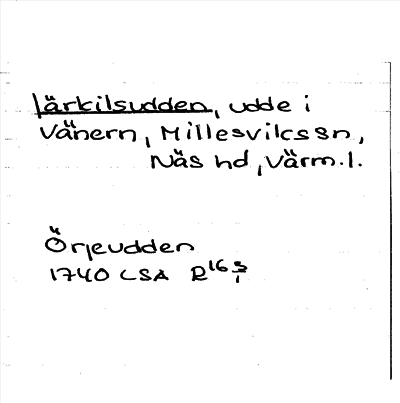 Järkilsudden, udde i
Vänern, Millesviks sn,
Näs hd, Värm. l.
Örjeudden
1740 LSA R16